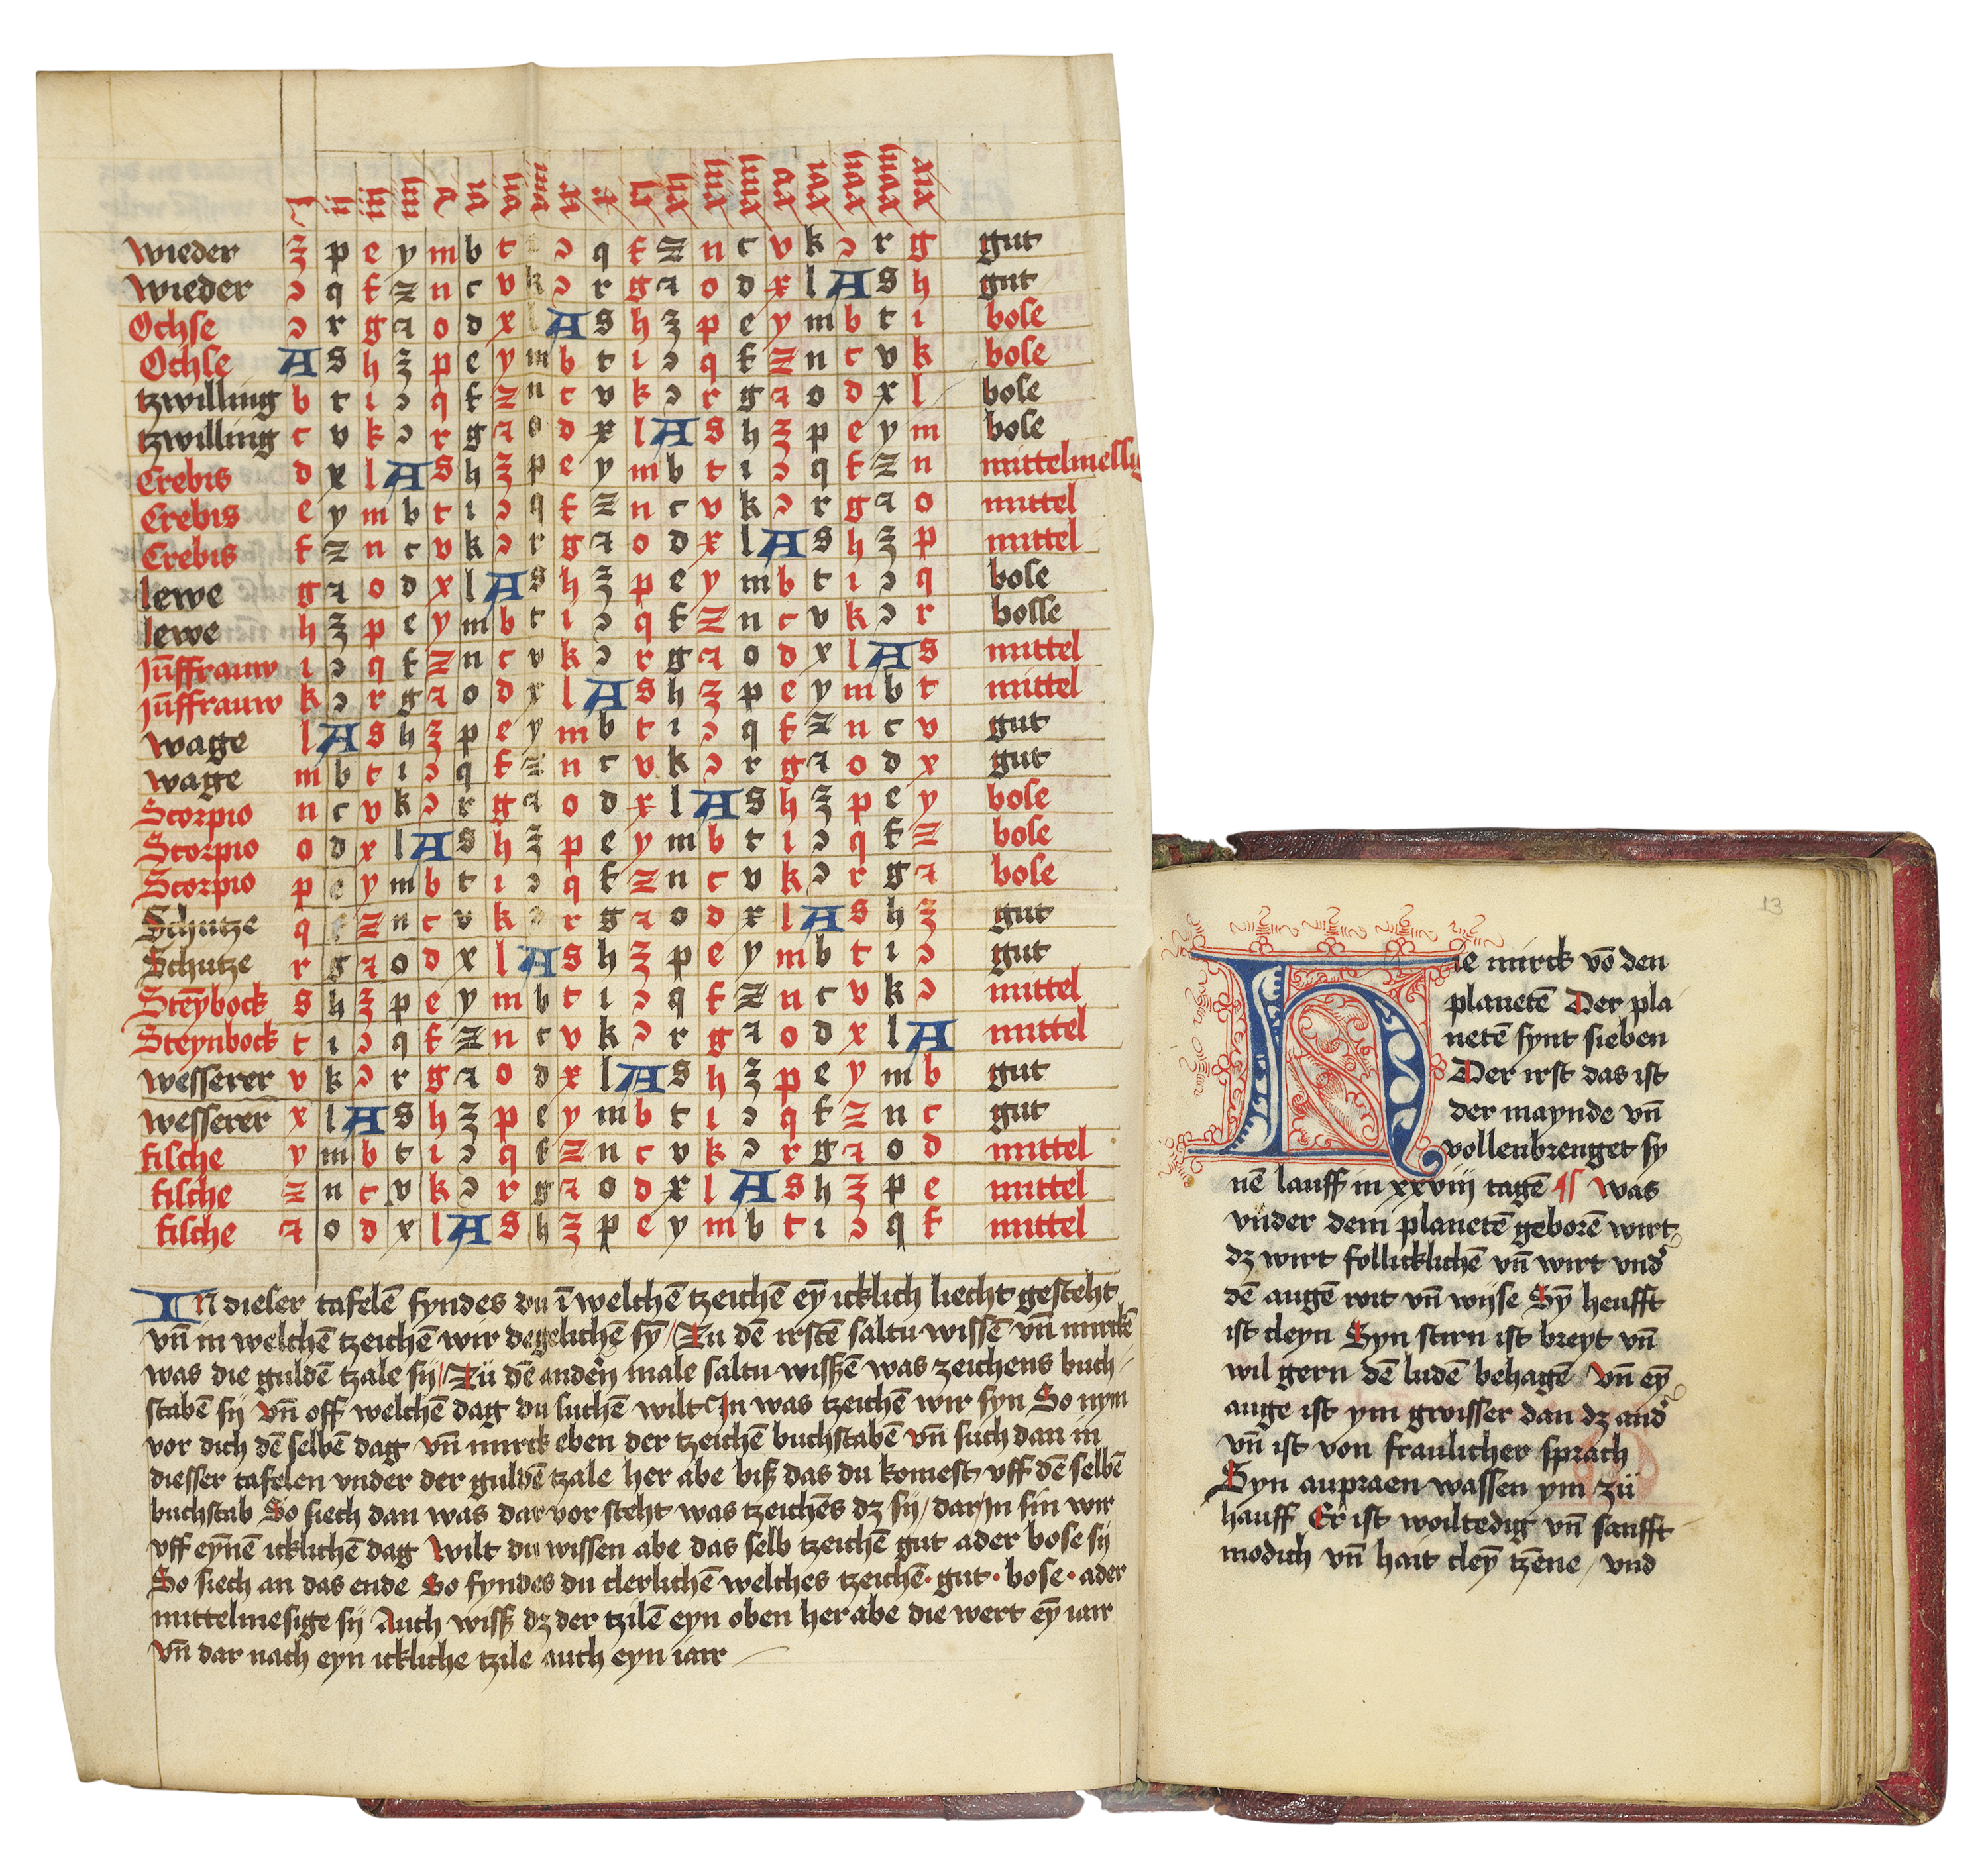 i ii iii iiii v vi vii viii ix x xi xii xiii xiiii xv xvi xvii xviii xix
Wieder ʒ p e y m b t ɔ q f z n c v k ɔ r g gut
Wieder ɔ q f z n c v k ɔ r g ꝛ o d x l A s h gut
Ochse ɔ r g ꝛ o d x l A s h ʒ p e y m b t i bose
Ochse A s h ʒ p e y m b t i ɔ q f z n c v k bose
tzwilling b t i ɔ q f z n c v k ɔ r g ꝛ o d x l bose
tzwilling c v k ɔ r g ꝛ o d x l A s h ʒ p e y m bose
Crebis d x l A s h ʒ p e y m b t i ɔ q f z n mittelmessig
Crebis e y m b t i ɔ q f z n c v k ɔ r g ꝛ o mittel
Crebis f z n c v k ɔ r g ꝛ o d x l A s h ʒ p mittel
lewe g ꝛ o d x l A s h ʒ p e y m b t i ɔ q bose
lewe h ʒ p e y m b t i ɔ q f z n c v k ɔ r bosse
jūffrauw i ɔ q f z n c v k ɔ r g ꝛ o d x l A s mittel
jūffrauw k ɔ r g ꝛ o d x l A s h ʒ p e y m b t mittel
wage l A s h ʒ p e y m b t i ɔ q f z n c v gut
wage m b t i ɔ q f z n c v k ɔ r g ꝛ o d x gut
Scorpio n c v k ɔ r g ꝛ o d x l A s h ʒ p e y bose
Scorpio o d x l A s h ʒ p e y m b t i ɔ q f z bose
Scorpio p e y m b t i ɔ q f z n c v k ɔ r g ꝛ bose
Schutze q f z n c v k ɔ r g ꝛ o d x l A s h ʒ gut
Schutze r g ꝛ o d x l A s h ʒ p e y m b t i ɔ gut
Steȳbock s h ʒ p e y m b t i ɔ q f z n c v k ɔ mittel
Steynbock t i ɔ q f z n c v k ɔ r g ꝛ o d x l A mittel
wesserer v k ɔ r g ꝛ o d x l A s h ʒ p e y m b gut
wesserer x l A s h ʒ p e y m b t i ɔ q f z n c gut
fische y m b t i ɔ q f z n c v k ɔ r g ꝛ o d mittel
fische z n c v k ɔ r g ꝛ o d x l A s h ʒ p e mittel
fische ꝛ o d x l A s h ʒ p e y m b t i ɔ q f mittel
IN dieser tafelē fyndes du ī welchē tzeichē eȳ icklich liecht gesteht
vn̄ in welchē tzeichē wir degelichē sȳ / Zu dē irstē saltu wissē vn̄ mirckē
was die guldē tzale sij / Zü dē andern male saltu wissē was zeichens buch /
stabē sij vn̄ off welchē dag du suchē wilt In was tzeichē wir syn So nym
vor dich dē selbē dag vn̄ mirck eben der tzeichē buchstabē vn̄ such dan in
diesser tafelen vnder der guldē tzale her abe biß das du komest vff dē selbē
buchstab So siech dan was dar vor steht was tzeichēs dz sij / dar in sin wir
vff eynē icklichē dag Wilt du wissen abe das selb tzeichē gut ader bose sij
So siech an das ende So fyndes du clerlichē welches tzeichē · gut · bose · ader
mittelmesige sij Auch wiß dz der tzilē eyn oben her abe die wert eȳ iair
vn̄ dar nach eyn ickliche tzile auch eyn iair
13
HIe mirck vō den
planetē Der pla
netē synt sieben
Der irst das ist
der maynde vn̄
vollenbrenget sy
nē lauff in xxviij tagē ¶ Was
vnder dem planetē geborē wirt
dz wirt follicklichē vn̄ wirt vnd̕
dē augē wit vn̄ wijse Sȳ heufft
ist cleyn Syn stirn ist breyt vn̄
wil gern dē ludē behagē Vn̄ eȳ
auge ist ym groisser dan dz and̕
vn̄ ist von fraulicher sprach
Syn aupraen wassen ym zü
hauff Er ist woiltedig vn̄ saufft
modich vn̄ hait cleȳ tzene / vnd